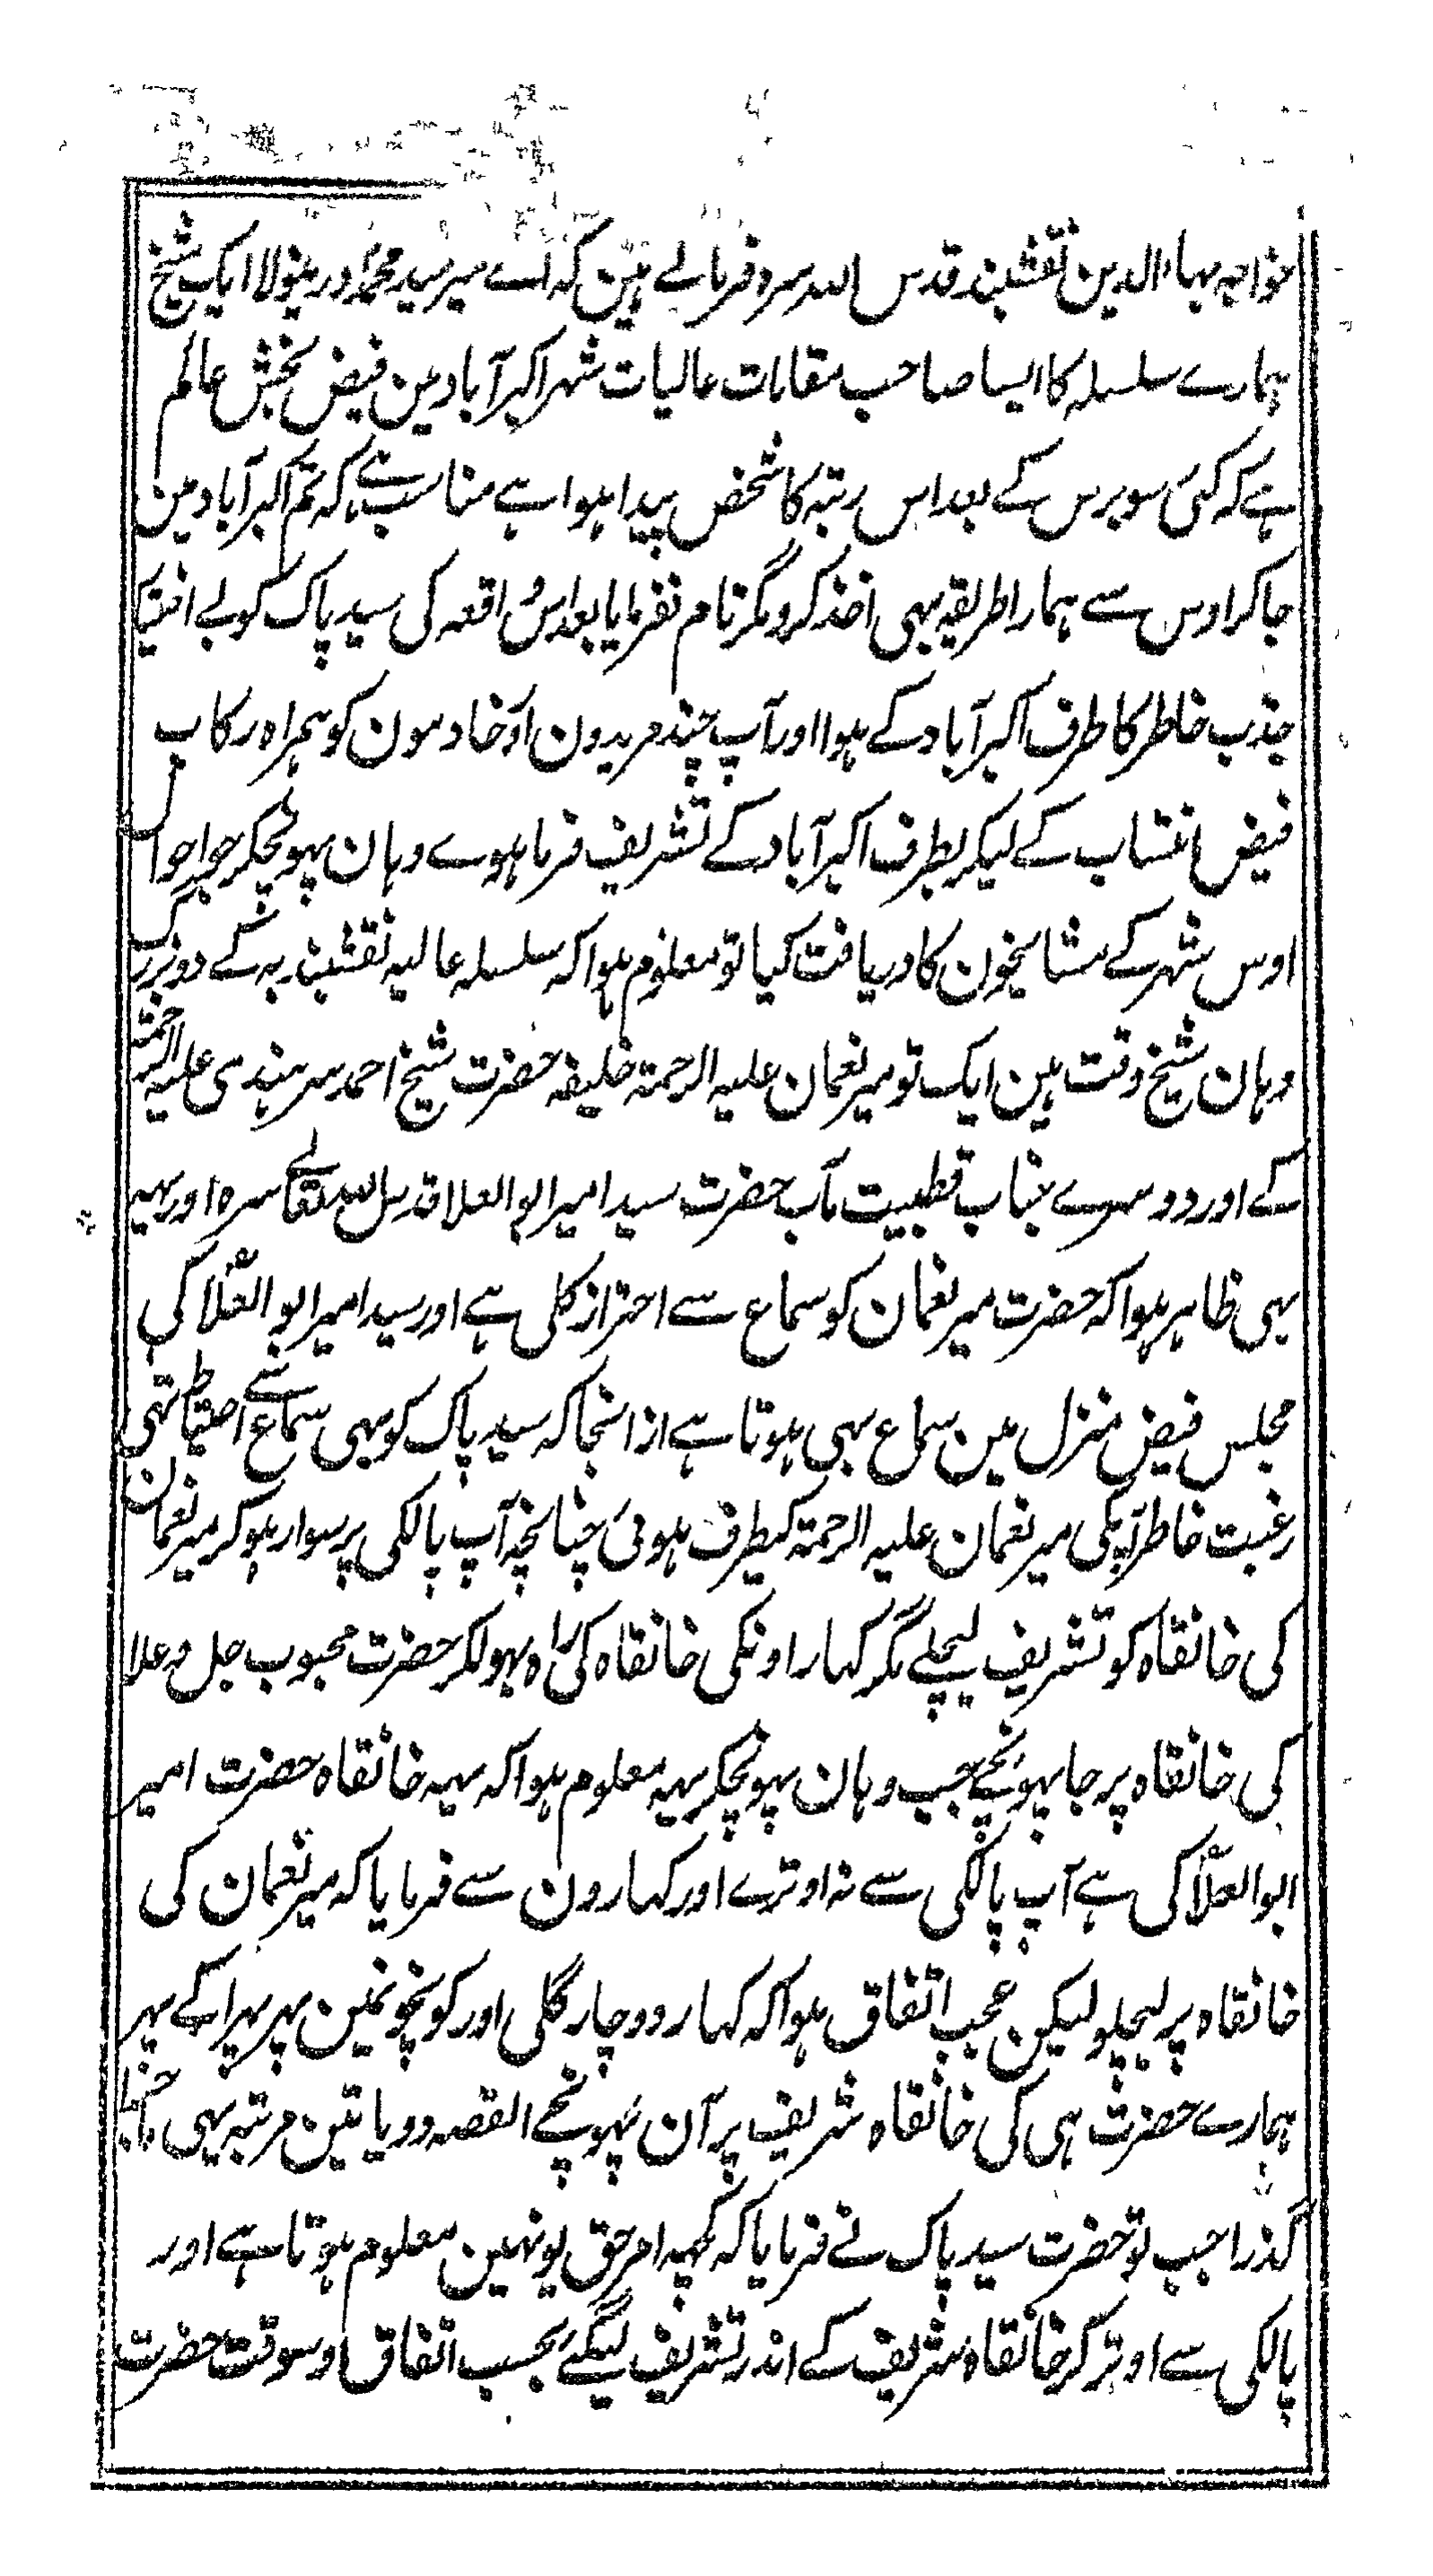 خواجہ بہاءالدین نقشبند قدس اللہ سرہ فرماتے ہین کہ اے میر سید محمد اور ینولا ایک شیخ
ہمارے سلسلہ کا ایسا صاحب مقامات عالیات شہر اکبرآباد مین فیض بخش عالم
ہے کہ کئی سو برس کے بعد اس رتبہ کا شخص پیدا ہوا ہے مناسب ہے کہ تم اکبرآباد مین
جاکر اوس سے ہمارا طریقہ بھی اخذ کرو مگر نام نفرمایا بعد اس واقعہ کی سید پاک کو بے اختیار
جذب خاطر کا طرف اکبرآباد کے ہوا اور آپ چند مریدون اور خادمون کو ہمراہ رکاب
فیض انتساب کے لیکر بطرف اکبرآباد کے تشریف فرما ہوے وہان پہونچکر جو احوال
اوس شہر کے مشایخون کا دریافت کیا تو معلوم ہوا کہ سلسلہ عالیہ نقشبندیہ کے دو بزرگ
وہان شیخ وقت ہین ایک تو میر نعمان علیہ الرحمۃ خلیفہ حضرت شیخ احمد سرہندی علیہ الرحمۃ
کے اور دوسرے جناب قطبیت مآب حضرت سید امیر ابو العلا قدس اللہ تعالے سرہ اور یہہ
بھی ظاہر ہوا کہ حضرت میر نعمان کو سماع سے احتراز کلی ہے اور سید امیر ابو العلا کی
مجلس فیض منزل مین سماع بھی ہوتا ہے ازانجا کہ سید پاک کو بھی سماع سے احتیاط تھی
رغبت خاطر آپکی میر نعمان علیہ الرحمۃ کیطرف ہوئی چنانچہ آپ پالکی پر سوار ہوکر میر نعمان
کی خانقاہ کو تشریف لیچلے مگر کہار اونکی خانقاہ کی راہ بھولکر حضرت محبوب جل و علا
کی خانقاہ پر جا پہونچے جب وہان پہونچکر یہہ معلوم ہوا کہ یہہ خانقاہ حضرت امیر
ابو العلا کی ہے آپ پالکی سے نہ اوترے اور کہارون سے فرمایا کہ میر نعمان کی
خانقاہ پر لیچلو لیکن عجب اتفاق ہوا کہ کہار دو چار گلی اور کوچونمین پھر پھرا کے پھر
ہمارے حضرت ہی کی خانقاہ شریف پر آن پہونچے القصہ دو یا تین مرتبہ یہی
گذرا جب تو حضرت سید پاک نے فرمایا کہ کچہہ امر حق یونہین معلوم ہوتا ہے اور
پالکی سے اوتر کر خانقاہ شریف کے اندر تشریف لیگئے بحسب اتفاق اوسوقت حضرت